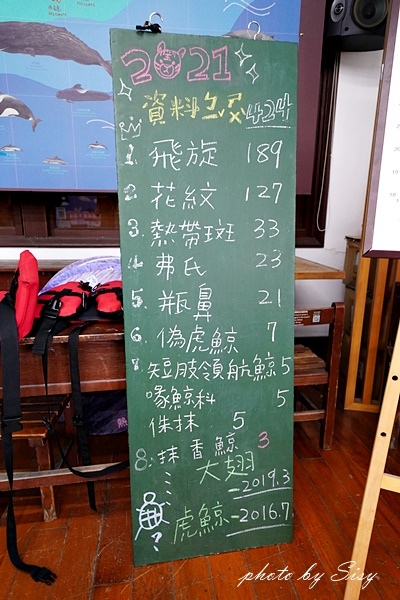 2021
資料ㄅㄡˊ 424
1. 飛旋 189
2. 花紋 127
3. 熱帶斑 33
4. 弗氏 23
5. 瓶鼻 21
6. 偽虎鯨 7
7. 短肢領航鯨 5
喙鯨科 5
侏抹 5
8. 抹香鯨 3
大翅
-2019.3
虎鯨-2016.7
?
photo by Sisy